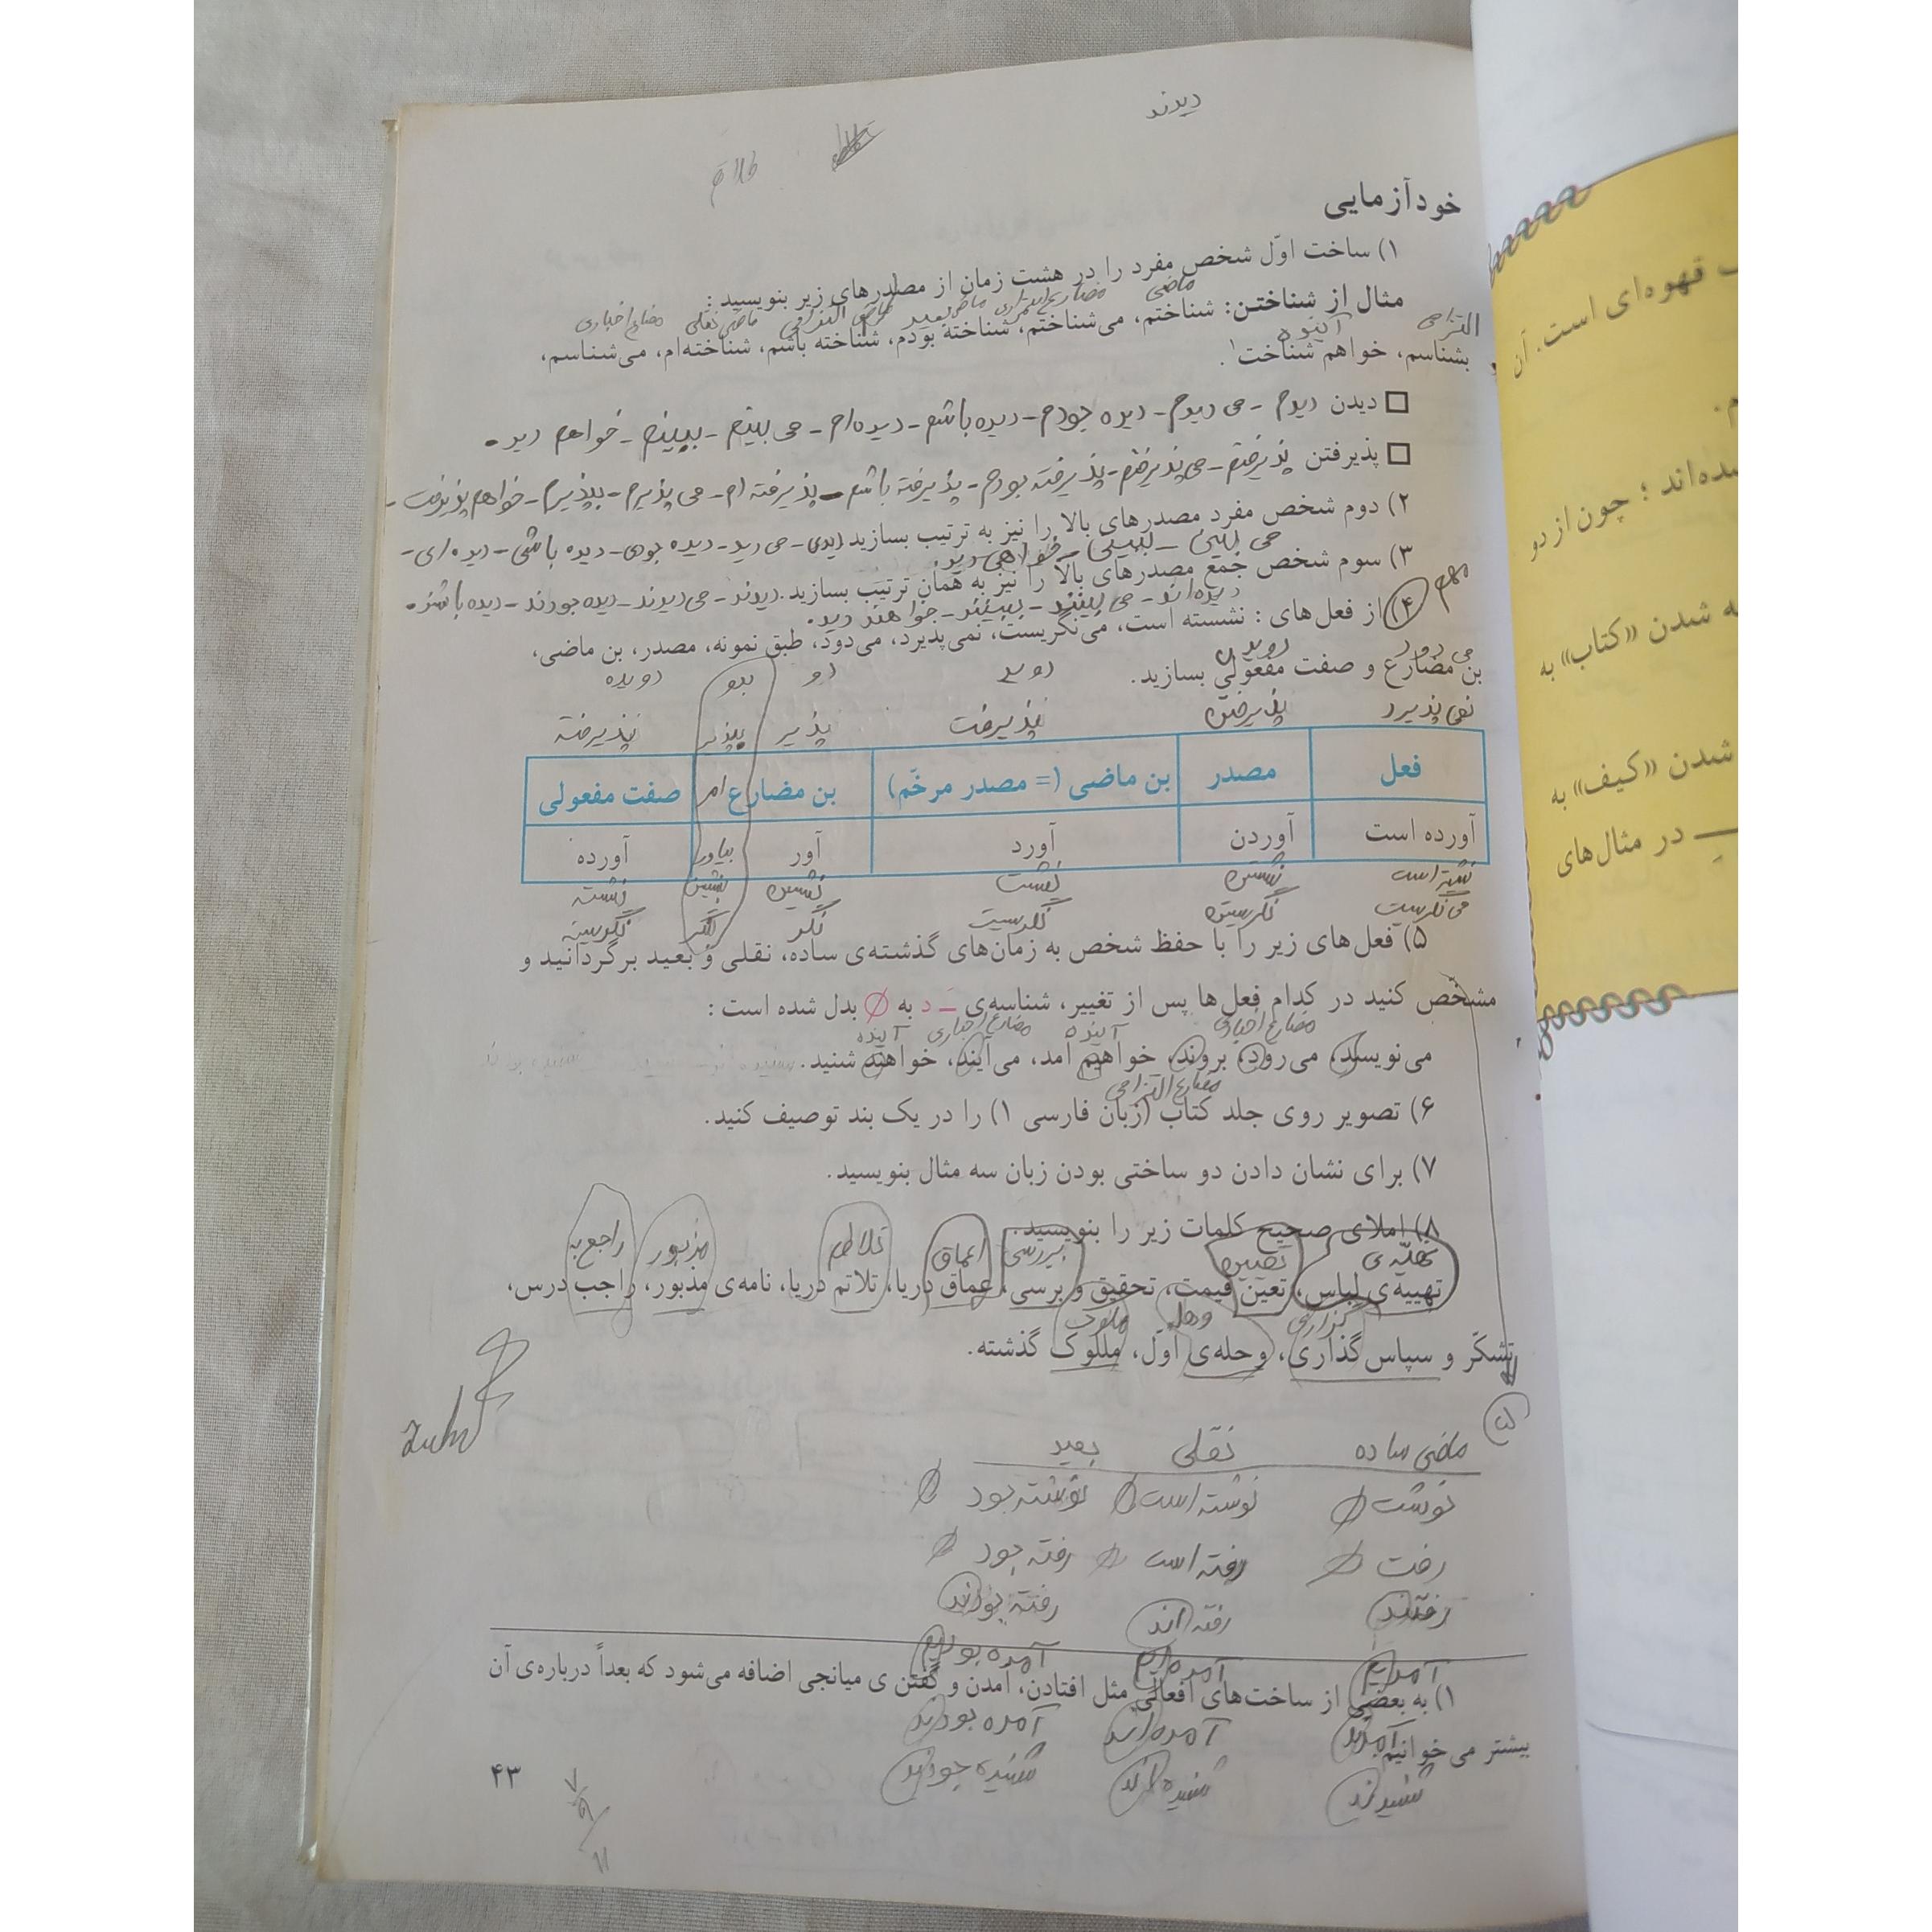 دیدند
خودآزمایی
۱) ساخت اوّل شخص مفرد را در هشت زمان از مصدرهای زیر بنویسید :
ماضی
مثال از شناختن: شناختم، می‌شناختم، شناخته بودم، شناخته باشم، شناخته‌ام، می‌شناسم،
التزامی آینده
بشناسم، خواهم شناخت۱.
□ دیدن دیدم - می دیدم - دیده بودم - دیده باشم - دیده‌ام - می بینم - ببینم - خواهم دید.
□ پذیرفتن پذیرفتم - می پذیرفتم - پذیرفته بودم - پذیرفته باشم - پذیرفته ام - می پذیرم - بپذیرم - خواهم پذیرفت -
۲) دوم شخص مفرد مصدرهای بالا را نیز به ترتیب بسازید دیدی - می دید - دیده بودی - دیده باشی - دیده ای -
می بینی - ببینی - خواهی دید
۳) سوم شخص جمع مصدرهای بالا را نیز به همان ترتیب بسازید. دیدند - می دیدند - دیده بودند - دیده باشند -
دیده‌اند - می بینند - ببینند - خواهند دید.
مهم
۴) از فعل‌های : نشسته است، می‌نگریست، نمی‌پذیرد، می‌دود، طبق نمونه، مصدر، بن ماضی،
بن مضارع و صفت مفعولی بسازید.
می دود دویدن دوید دو بدو دویده
نمی پذیرد پذیرفتن پذیرفت پذیر بپذیر پذیرفته
فعل مصدر بن ماضی (= مصدر مرخّم) بن مضارع امر صفت مفعولی
آورده است آوردن آورد آور بیاور آورده
نشسته است نشستن نشست نشین بنشین نشسته
می نگریست نگریستن نگریست نگر بنگر نگریسته
۵) فعل‌های زیر را با حفظ شخص به زمان‌های گذشته‌ی ساده، نقلی و بعید برگردانید و
مشخّص کنید در کدام فعل‌ها پس از تغییر، شناسه‌ی ـَ د به Ø بدل شده است :
مضارع اخباری آینده مضارع اخباری آینده
می‌نویسد، می‌رود، بروند، خواهیم آمد، می‌آیند، خواهند شنید.
مضارع التزامی
۶) تصویر روی جلد کتاب (زبان فارسی ۱) را در یک بند توصیف کنید.
۷) برای نشان دادن دو ساختی بودن زبان سه مثال بنویسید.
۸) املای صحیح کلمات زیر را بنویسید.
تهیّه ی تعیین بررسی اعماق تلاطم مزبور راجع به
تهییه‌ی لباس، تعین قیمت، تحقیق و برسی، عماق دریا، تلاتم دریا، نامه‌ی مذبور، راجب درس،
گزاری وهله ملوک
تشکّر و سپاس گذاری، وحله‌ی اوّل، مللوک گذشته.
۵
ماضی ساده نقلی بعید
نوشت Ø نوشته است Ø نوشته بود Ø
رفت Ø رفته است Ø رفته بود Ø
رفتند رفته اند
آمدیم آمده ایم آمده بودیم
۱) به بعضی از ساخت‌های افعالی مثل افتادن، آمدن و گفتن ی میانجی اضافه می‌شود که بعداً درباره‌ی آن
آمدند آمده اند آمده بودند
بیشتر می‌خوانیم.
شنیدند شنیده اند شنیده بودند
۴۳
ـ قهوه‌ای است. آن
م.
شده‌اند ؛ چون از دو
ه شدن «کتاب» به
شدن «کیف» به
ـِ در مثال‌های